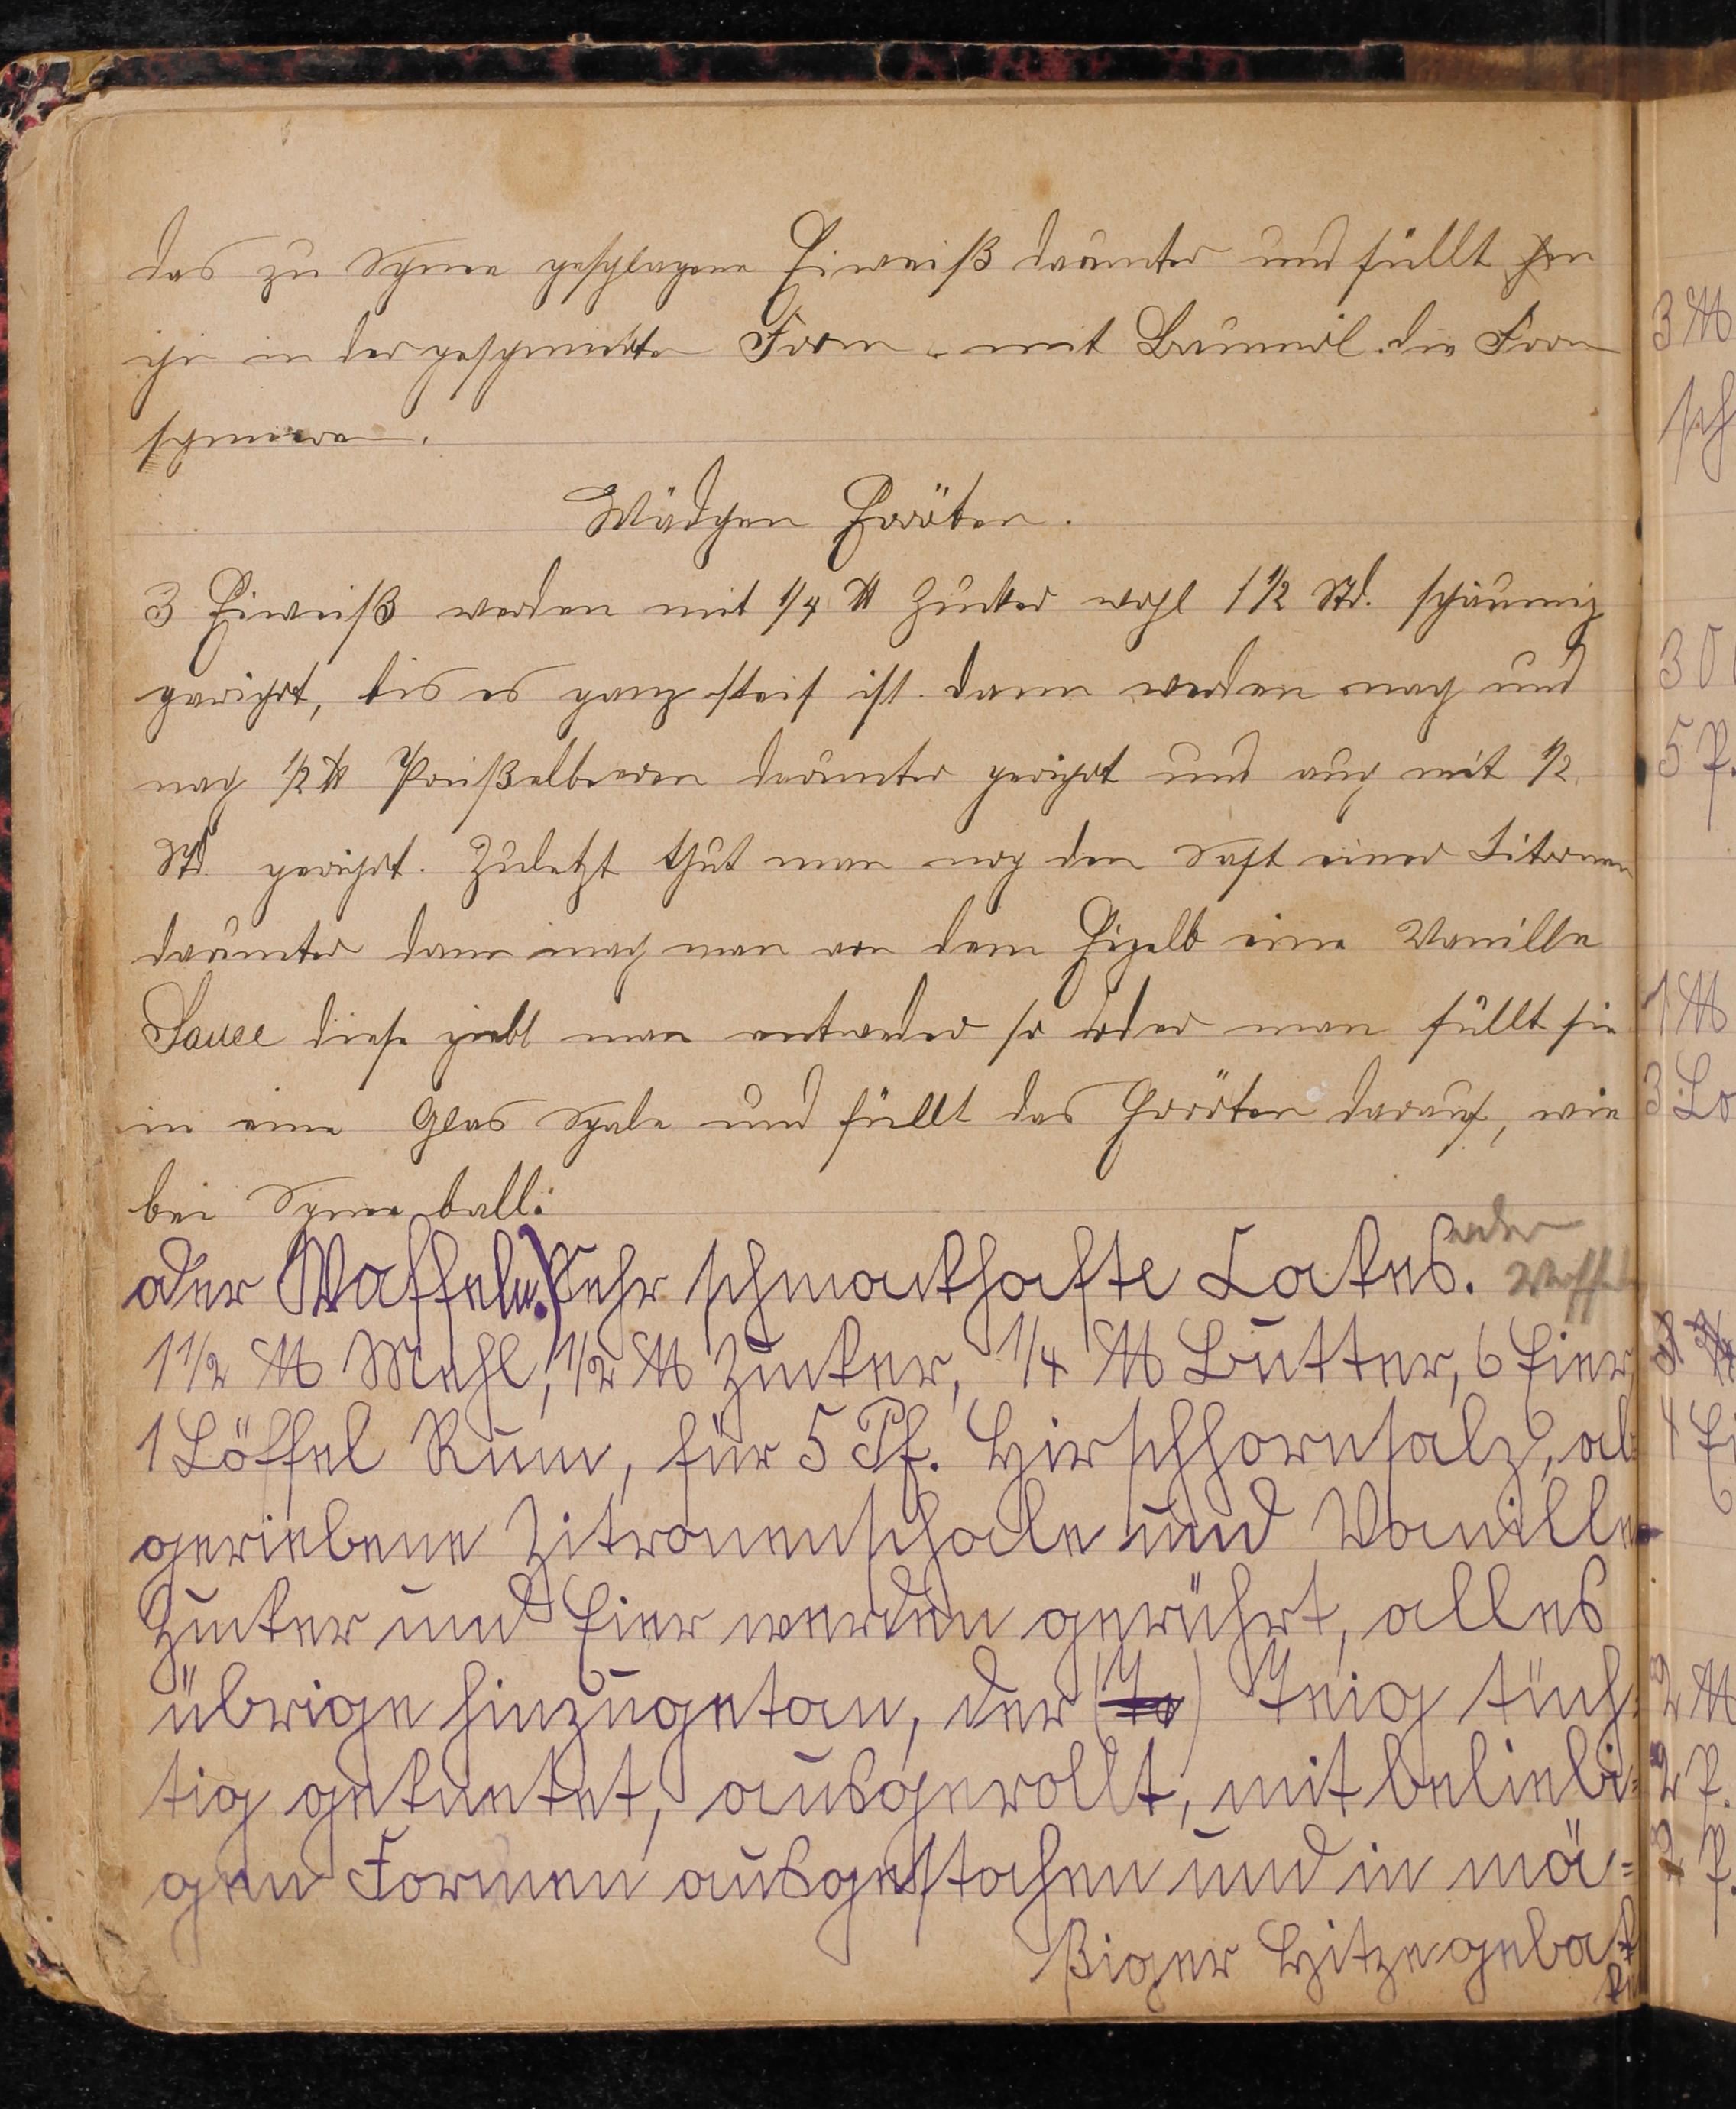 das zu Schnee geschlagene Eiweiß darunter und füllt
ihn in der geschmierten Form. mit Baumöl die Form
schmieren.
Mädchen Erröten.
3 Eiweiß werden mit 1/4 ℔ Zucker wohl 1 1/2 Std. schaumig
gerührt, bis es ganz steif ist. dann werden nach und
nach 1/2 ℔ Preißelbeeren darunter gerührt und auch mit 1/2
Std. gerührt. Zuletzt thut man noch den Saft einer Zitronen
darunter dann mach man von dem Eigelb eine Vanille
Sauce diese giebt man entweder so oder man füllt sie
in eine Glas Schale und füllt das Erröten darauf, wie
bei Schneeball.
oder
oder Waffeln.) Sehr schmackhafte Kakes. Waffeln
1 1/2 ℔ Mehl, 1/2 ℔ Zucker, 1/4 ℔ Butter, 6 Eier
1 Löffel Rum, für 5 Pf. Hirschhornsalz, ab
geriebene Zitronenschale und Vanille
Zucker und Eier werden gerührt, alles
übrige hinzugetan, der (Te) Teig tüch=
tig geknetet, ausgerollt, mit beliebi=
gen Formen ausgestochen und in mä=
ßiger Hitze gebak
3 ℔
sch
30
5 P.
1 ℔
3 Lo
4 Ei
2 ℔
2 P.
P.